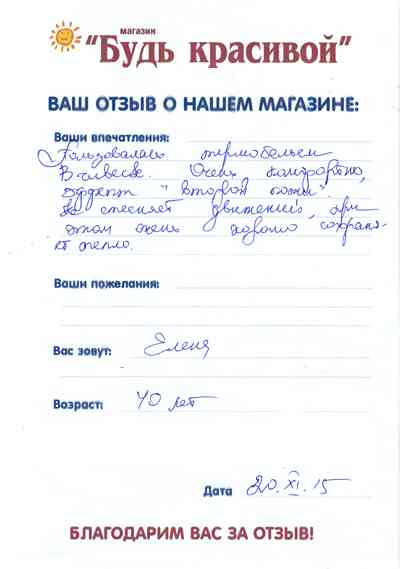 магазин
"Будь красивой"
ВАШ ОТЗЫВ О НАШЕМ МАГАЗИНЕ:
Ваши впечатления:
Пользовалась термобельем
Очень комфортно,
эффект "второй кожи".
Не стесняет движений, при
этом очень хорошо сохраня-
ет тепло.
Ваши пожелания:
Вас зовут: Елена
Возраст: 40 лет
Дата 20.XI.15
БЛАГОДАРИМ ВАС ЗА ОТЗЫВ!